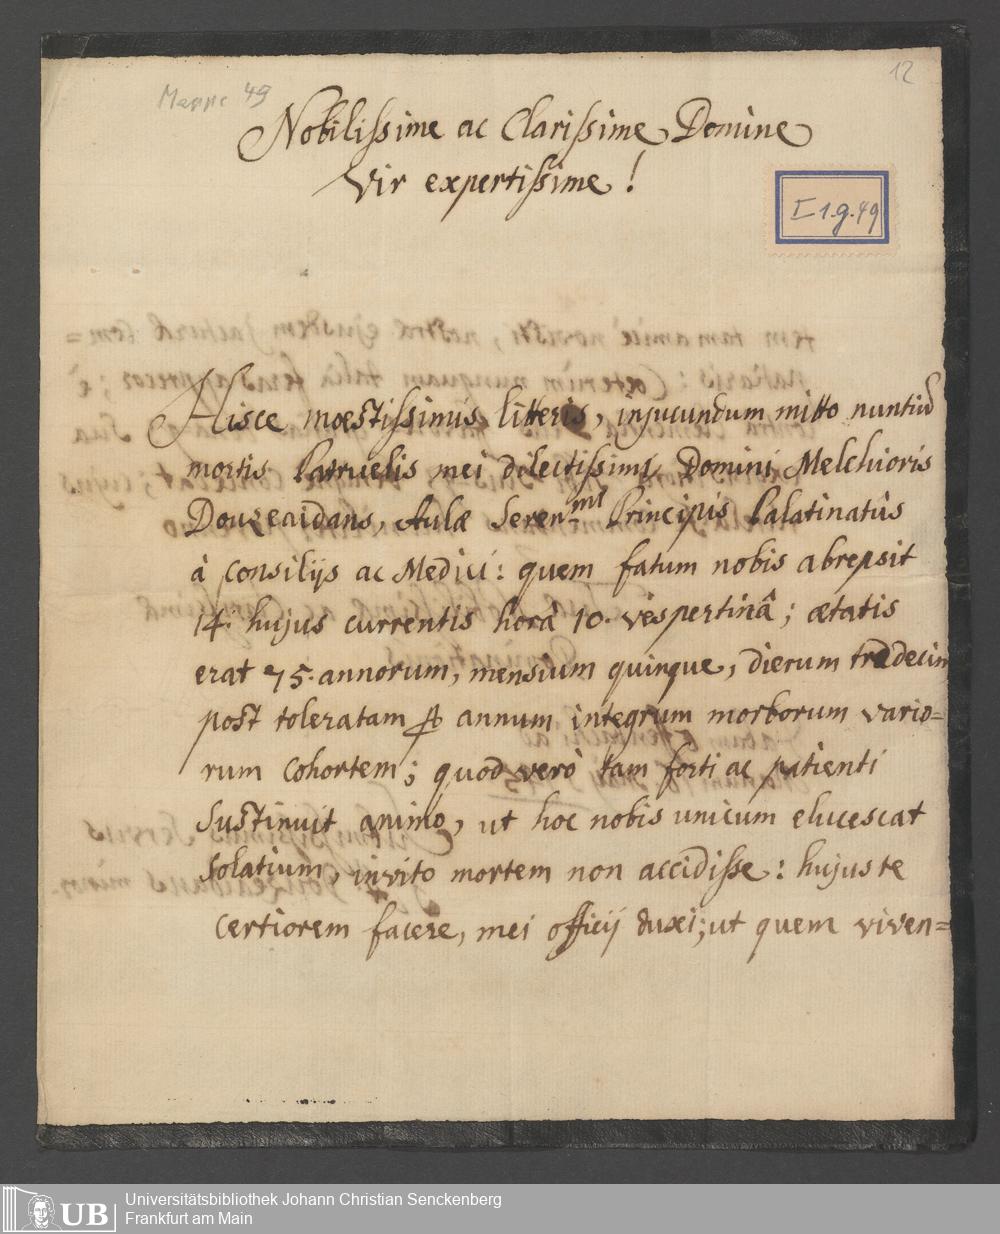 12
Mappe 49
Nobilissime ac Clarissime Domine
Vir expertissime!
I 1.g.49
Hisce moestissimis litteris, injucundum mitto nuntiū
mortis Patruelis mei dilectissimi, Domini Melchioris
Douzeaidans, Aulæ Seren.mi Principis Palatinatûs
à Consilijs ac Medici: quem fatum nobis abrepsit
14. hujus currentis horâ 10. vespertinâ; ætatis
erat 75. annorum, mensium quinque, dierum tredecim
post toleratam ꝑ annum integrum morborum vario=
rum Cohortem; quod verò tam forti ac patienti
sustinuit animo, ut hoc nobis unicum elucescat
solatium, invito mortem non accidisse: hujus te
certiorem facere, mei officij duxi; ut quem viven=
UB
Universitätsbibliothek Johann Christian Senckenberg
Frankfurt am Main